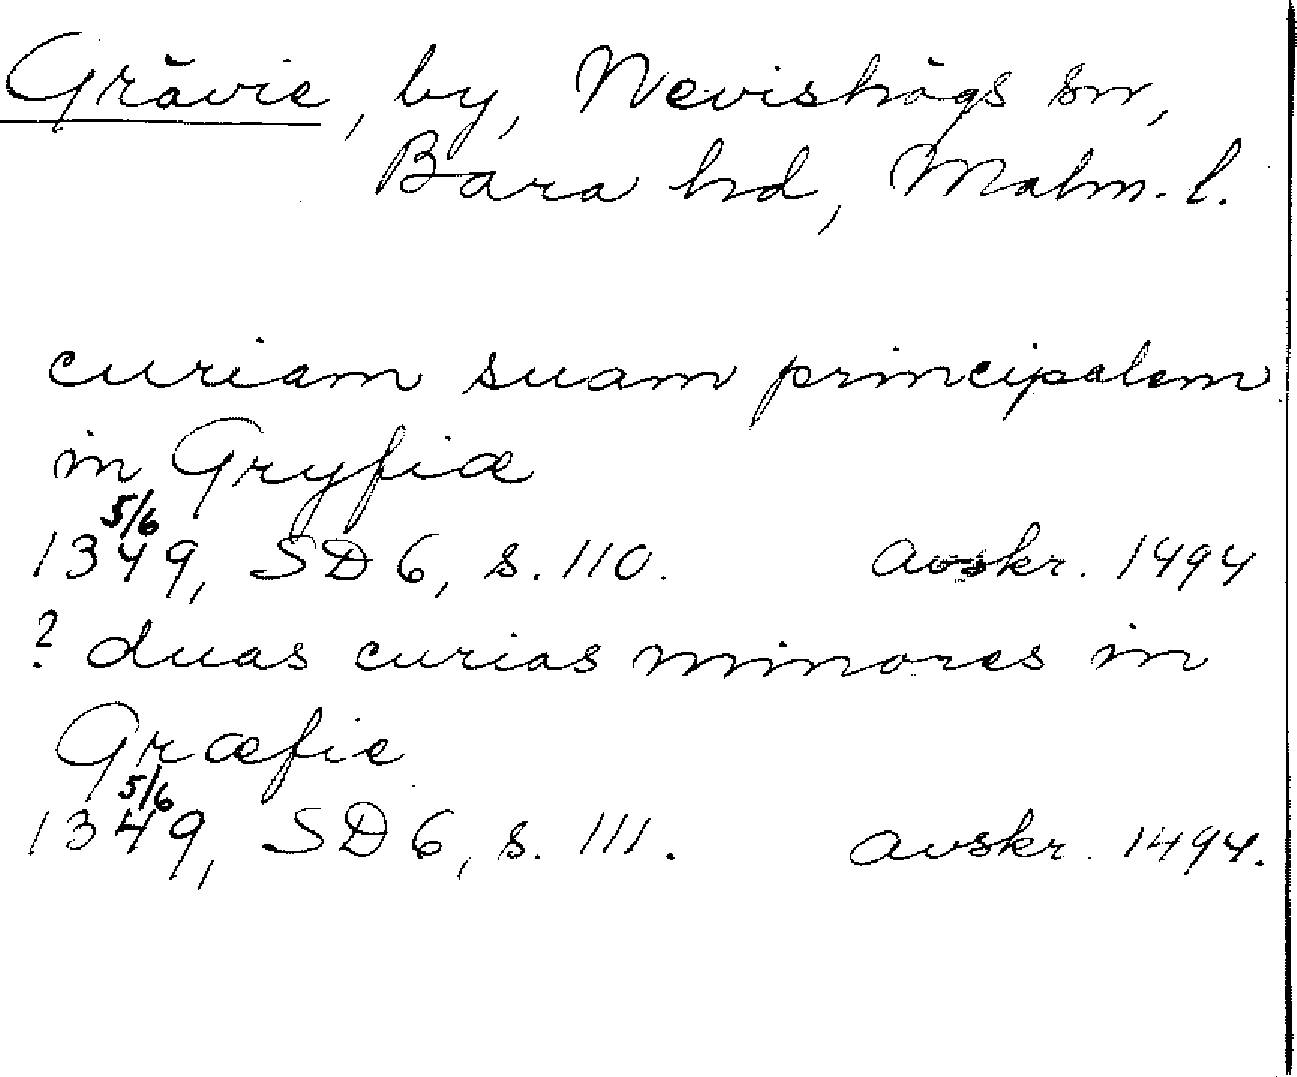 Grävie, by, Nevishögs sn,
Bara hd, Malm. l.
curiam suam principalem
in Gryfiæ
5/6
1349, SD 6, s. 110. avskr. 1494
? duas curias minores in
Græfie
5/6
1349, SD 6, s. 111. avskr. 1494.